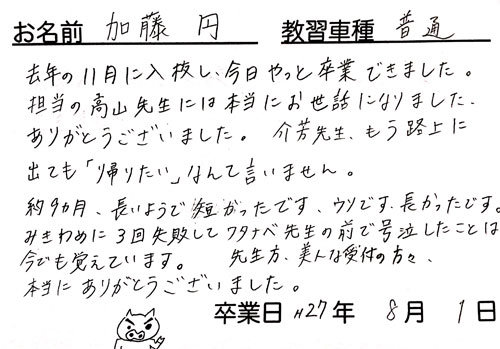 お名前 加藤 円 教習車種 普通
去年の11月に入校し、今日やっと卒業できました。
担当の高山先生には本当にお世話になりました、
ありがとうございました。 介芳先生、もう路上に
出ても「帰りたい」なんて言いません。
約9カ月、長いようで短かったです、ウソです、長かったです。
みきわめに3回失敗してワタナベ先生の前で号泣したことは
今でも覚えています。 先生方、美人な受付の方々、
本当にありがとうございました。
卒業日 H27年 8月 1日